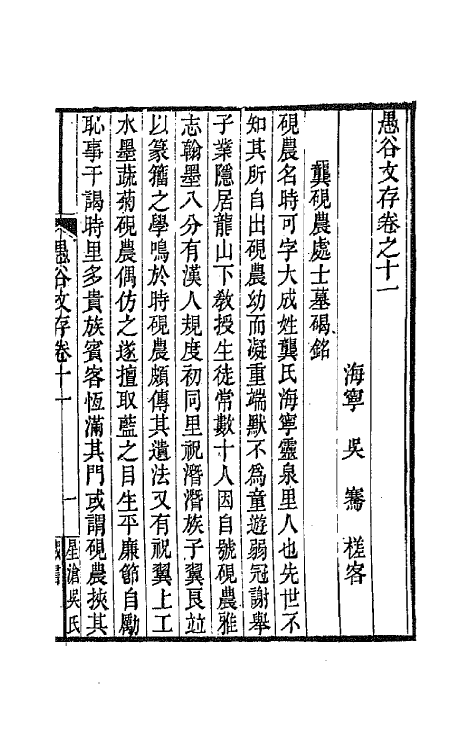 愚谷文存卷之十一
海寧 吳 騫 槎客
龔硯農處士墓碣銘
硯農名時可字大成姓龔氏海寧靈泉里人也先世不
知其所自出硯農幼而凝重端默不為童遊弱冠謝舉
子業隱居龍山下敎授生徒常數十人因自號硯農雅
志翰墨八分有漢人規度初同里祝潛潛族子翼艮竝
以篆籀之學鳴於時硯農頗傳其遺法又有祝翼上工
水墨蔬菊硯農偶仿之遂擅取藍之目生平廉節自勵
恥事干謁時里多貴族賓客恆滿其門或謂硯農挾其
愚谷文存卷十一
一
星滄吳氏